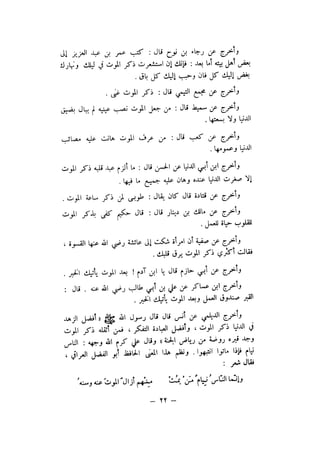 وأخرج عن رجاء بن نوح قال : كتب عمر بن عبد العزيز إلى
بعض أهل بيته أما بعد : فإنك إن استشعرت ذكر الموت في ليلك ونهارك
بغض إليك كل فان وحبب إليك كل باق .
وأخرج عن مجمع التيمي قال : ذكر الموت غنى .
وأخرج عن سميط قال : من جعل الموت نصب عينيه لم يبال بضيق
الدنيا ولا بسعتها .
وأخرج عن كعب قال : من عرف الموت هانت عليه مصائب
الدنيا وغمومها .
وأخرج ابن أبي الدنيا عن الحسن قال : ما ألزم عبد قلبه ذكر الموت
إلا صغرت الدنيا عنده وهان عليه جميع ما فيها .
وأخرج عن قتادة قال كان يقال : طوبى لمن ذكر ساعة الموت .
وأخرج عن مالك بن دينار قال : قال حكيم كفى بذكر الموت
للقلوب حياة للعمل .
وأخرج عن صفية أن امرأة شكت إلى عائشة رضي الله عنها القسوة ،
فقالت أكثري ذكر الموت يرق قلبك .
وأخرج عن أبي حازم قال يا ابن آدم ! بعد الموت يأتيك الخبر .
وأخرج ابن عساكر عن علي بن أبي طالب رضي الله عنه . قال :
القبر صندوق العمل وبعد الموت يأتيك الخبر .
وأخرج الديلمي عن أنس قال قال رسول الله ﷺ « أفضل الزهد
في الدنيا ذكر الموت ، وأفضل العبادة التفكر ، فمن أثقله ذكر الموت
وجد قبره روضة من رياض الجنة » وقال علي كرم الله وجهه : الناس
نيام فإذا ماتوا انتبهوا . ونظم هذا المعنى الحافظ أبو الفضل العراقي ،
فقال شعر :
وإنما الناس نيام من يمت منهم أزال الموت عنه وسنه
– ٢٢ –